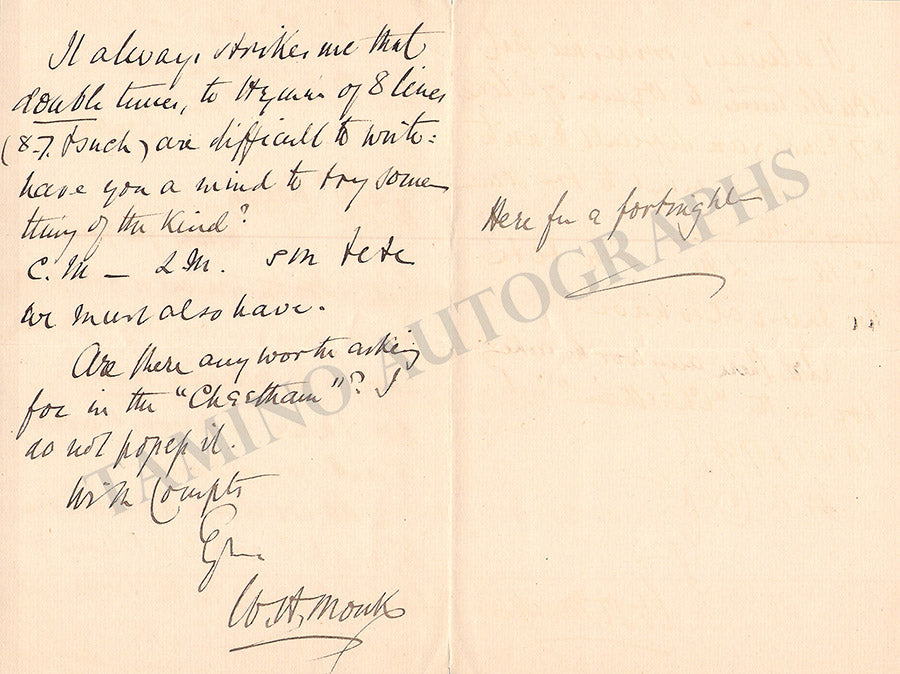 It always strikes me that
double tunes, to Hymns of 8 lines
(8-7. & such) are difficult to write:
have you a mind to try some
thing of the kind?
C.M – L.M.
we must also have.
Are there any worth asking
for in the "Cheetham"? I
do not possess it.
With Compts
W.H. Monk
Here for a fortnight
TAMINO AUTOGRAPHS